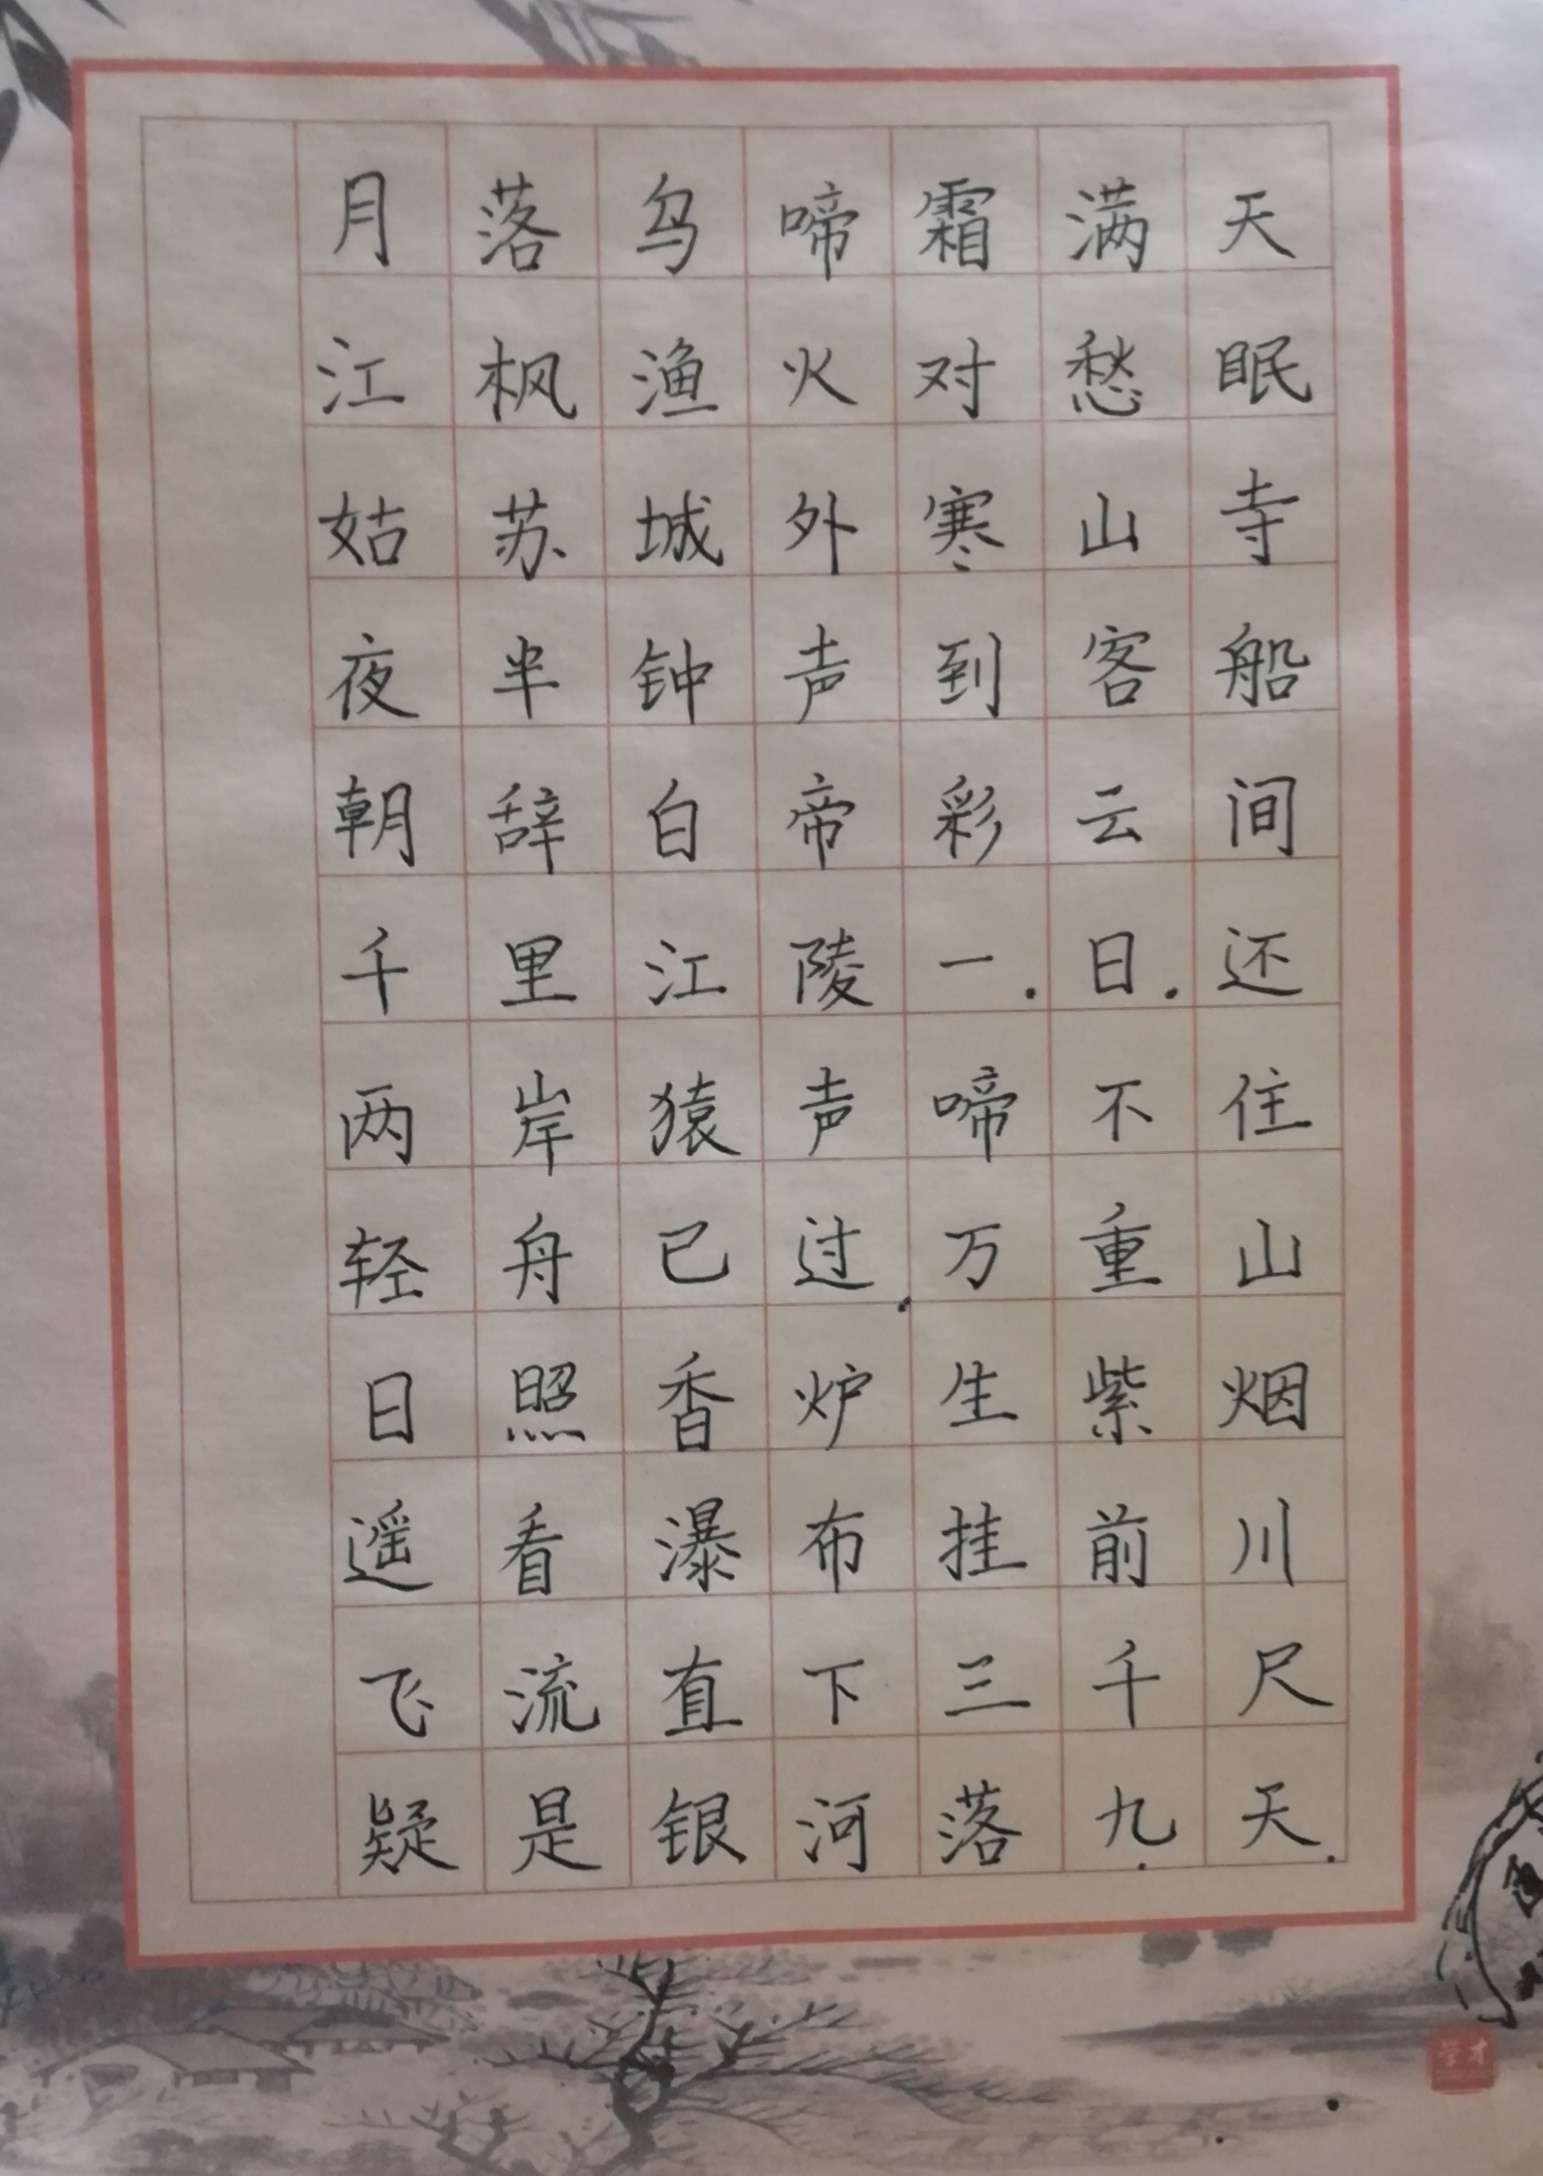 月落乌啼霜满天
江枫渔火对愁眠
姑苏城外寒山寺
夜半钟声到客船
朝辞白帝彩云间
千里江陵一日还
两岸猿声啼不住
轻舟已过万重山
日照香炉生紫烟
遥看瀑布挂前川
飞流直下三千尺
疑是银河落九天